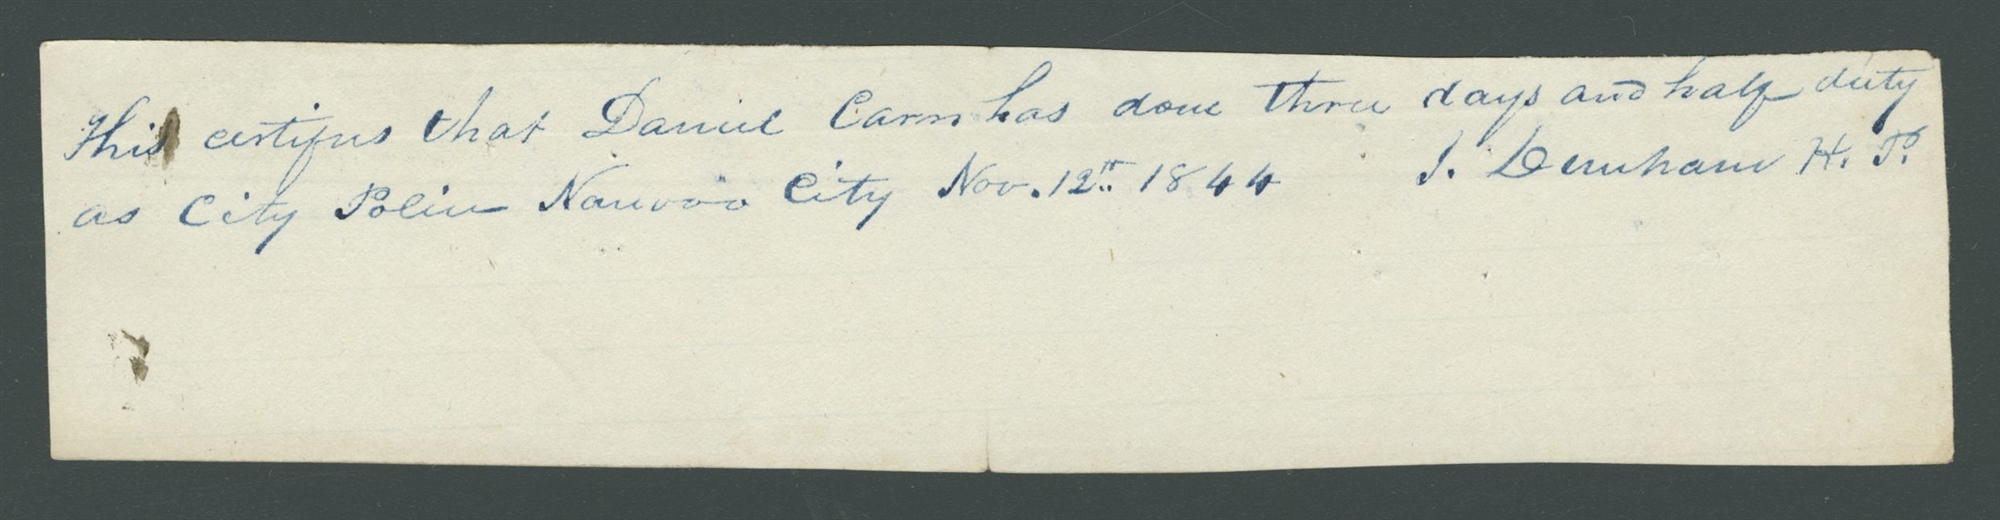 This certifies that Daniel Carn has done three days and half duty
as City Police Nauvoo City Nov. 12th 1844 J. Dunham H. P.